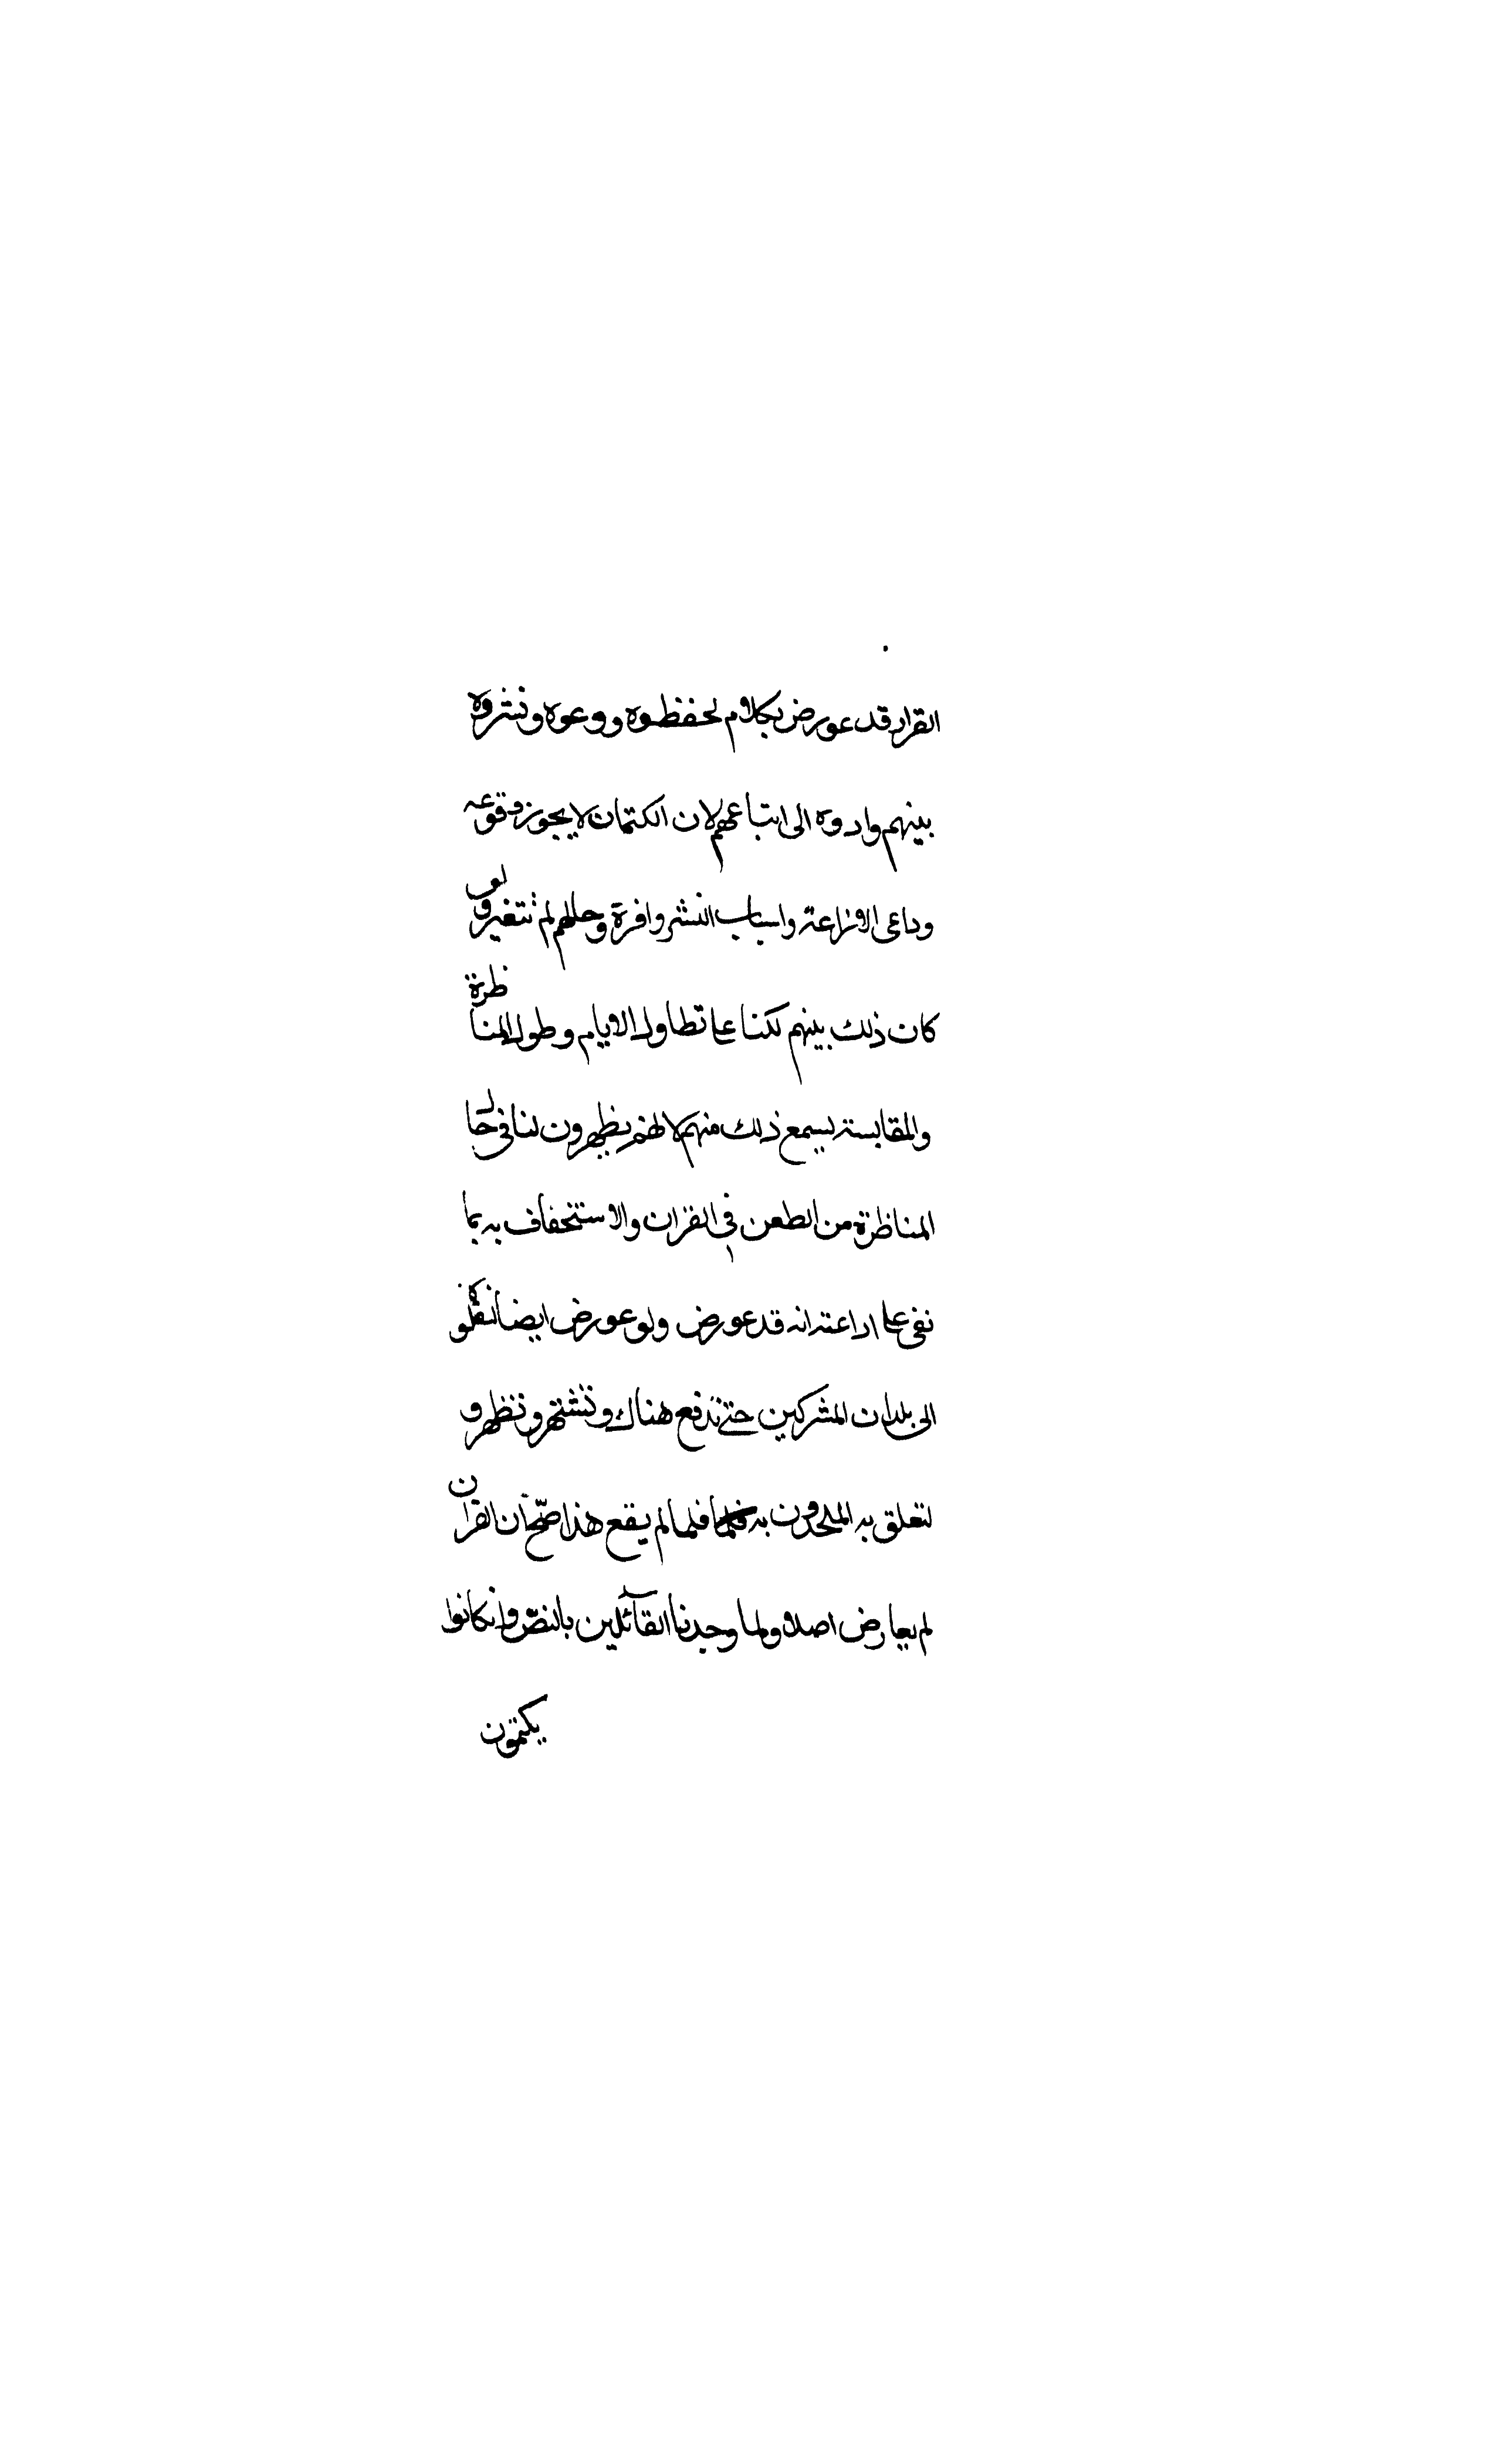 القران قد عورض بكلام لحفظوه ووعوه ونشروه
بينهم وادوه الى اتباعهم لان الكتمان لا يجوز وقوعه
وداعى الاذاعة واسباب النشر وافرة وحالهم لم تتغير ولو
كان ذلك بينهم لكنا على تطاول الايام وطول المناظرة
والمقابسة يسمع ذلك منهم لانهم يظهرون لنا فى حال
المناظرة من الطعن فى القران والاستخفاف به بما
نفى على ادعته انه قد عورض ولو عورض ايضا
الى بلدان المشركين حتى تدفع هناك وتشتهر وتظهر و
لتعلق به الملحدون به فلما لم يقع هذا صحّ ان القران
لم يعارض اصلا ولما وجدنا القآئلين بالنصّ وان كانوا
يكتمون